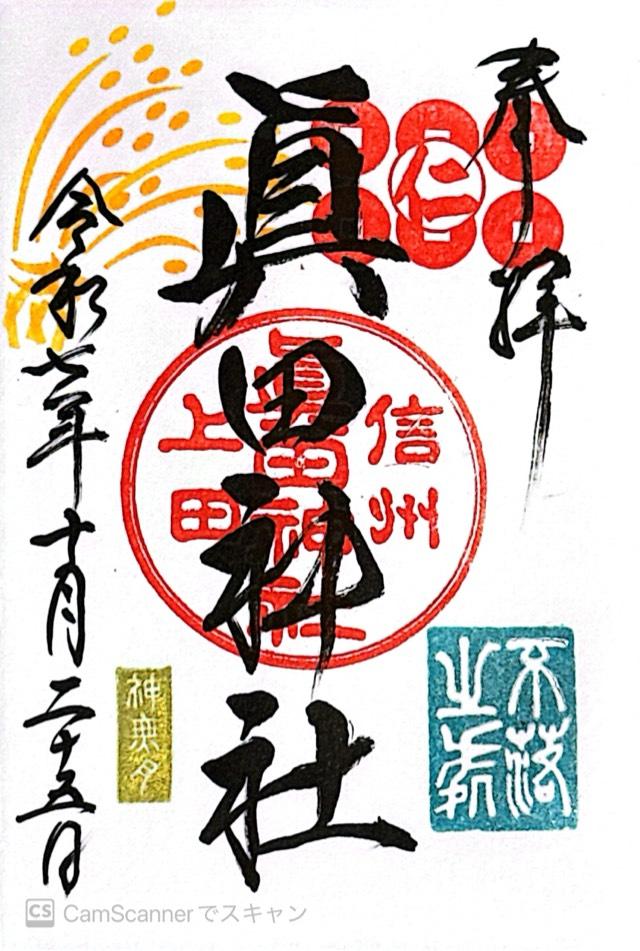 奉拝
仁
眞田神社
信州
眞田神社
上田
不落
之
神無月
令和七年十月二十五日
CS CamScannerでスキャン